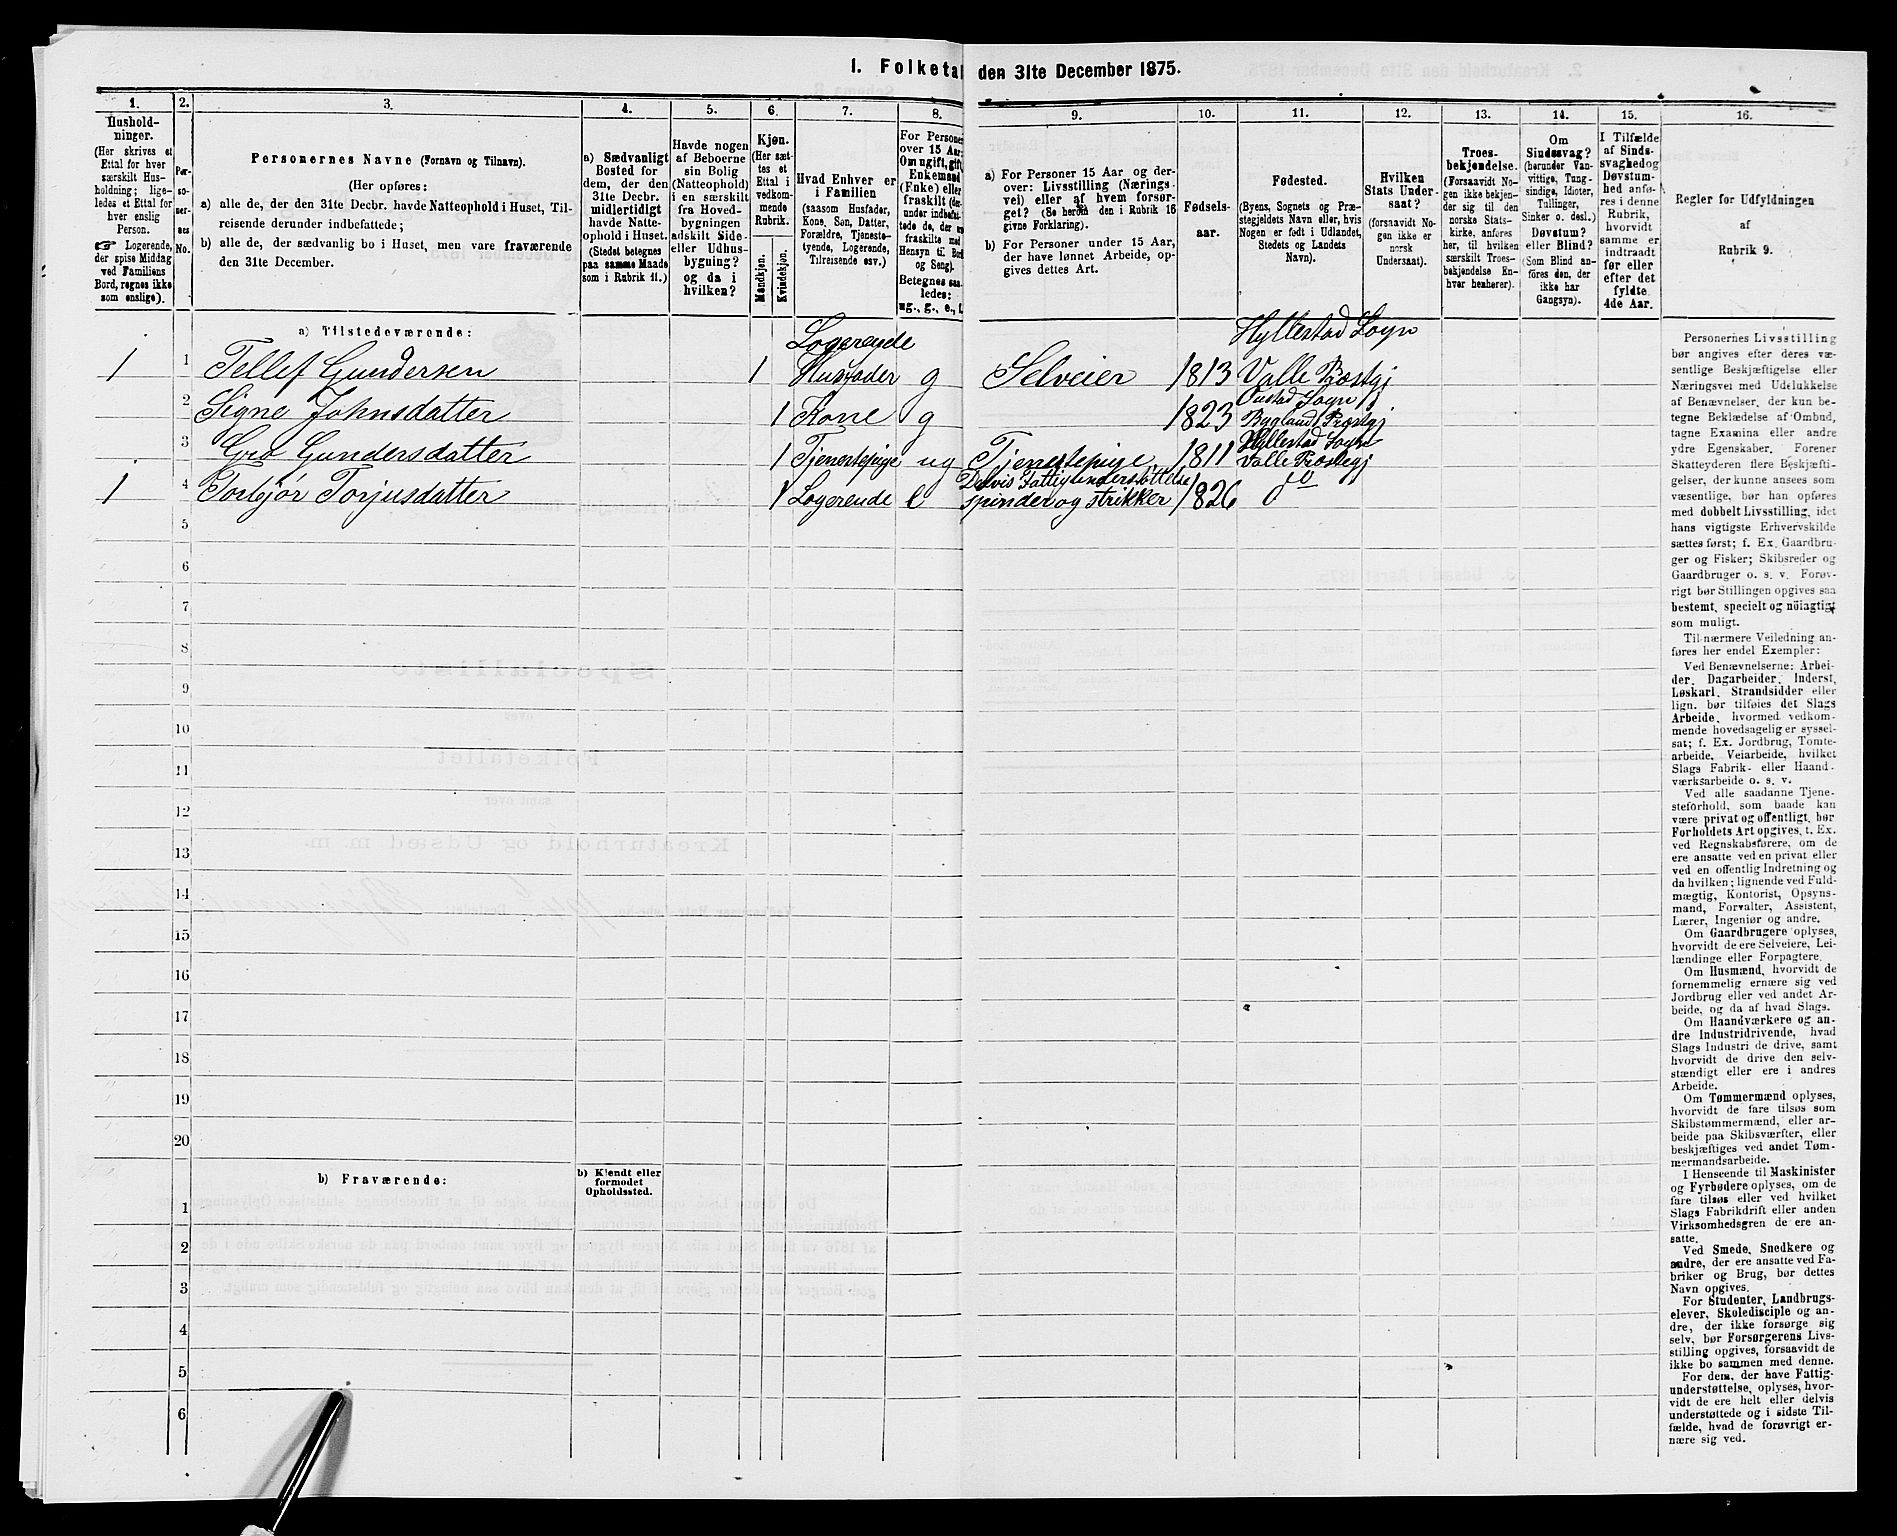 I. Folketal den 31te December 1875.
1. 2. 3. 4. 5. 6. 7. 8. 9. 10. 11. 12. 13. 14. 15. 16.
Husholdninger.
(Her skrives et
Ettal for hver
særskilt Husholdning;
ligeledes et Ettal for
hver enslig
Person.
☞ Logerende,
der spise Middag
ved Familiens
Bord, regnes ikke
som enslige).
Personernes No.
Personernes Navne (Fornavn og Tilnavn).
(Her opføres:
a) alle de, der den 31te Decbr. havde Natteophold i Huset, Tilreisende
derunder indbefattede;
b) alle de, der sædvanlig bo i Huset, men vare fraværende
den 31te December.
a) Sædvanligt
Bosted for
dem, der den
31te Decbr.
midlertidigt
havde Natteophold
i Huset.
(Stedet betegnes
paa samme Maade
som i Rubrik 11.)
Havde nogen
af Beboerne
sin Bolig
(Natteophold)
i en særskilt
fra Hovedbygningen
adskilt Side-
eller Udhusbygning?
og da i
hvilken?
Kjøn.
(Her sættes
et
Ettal i
vedkommende
Rubrik.
Mandkjøn.
Kvindekjøn.
Hvad Enhver er
i Familien
(saasom Husfader,
Kone, Søn, Datter,
Forældre, Tjenestetyende,
Logerende,
Tilreisende osv.)
For Personer
over 15 Aar:
Om ugift, gift,
Enkemand
(Enke) eller
fraskilt
Betegnes saaledes:
ug., g., e., f.
a) For Personer 15 Aar og derover:
Livsstilling (Næringsvei)
eller af hvem forsørget?
(Se herom den i Rubrik 16
givne Forklaring).
b) For Personer under 15 Aar,
der have lønnet Arbeide, opgives
dettes Art.
Fødselsaar.
Fødested.
(Byens, Sognets og Præstegjeldets
Navn eller, hvis
Nogen er født i Udlandet,
Stedets og Landets
Navn).
Hvilken
Stats Undersaat?
(forsaavidt Nogen
ikke er
norsk
Undersaat).
Troesbekjendelse.
(Forsaavidt Nogen
ikke bekjender
sig til den
norske Statskirke,
anføres
her, til hvilken
særskilt Troesbekjendelse
Enhver
henhører).
Om
Sindssvag?
(herunder Vanvittige,
Tungsindige,
Idioter,
Tullinger,
Sinker o. desl.)
Døvstum?
eller Blind?
(Som Blind anføres
den, der
ikke har
Gangsyn).
I Tilfælde
af Sindssvaghed
og
Døvstumhed
anføres
i denne
Rubrik,
hvorvidt
samme er
indtraadt
før eller
efter det
fyldte
4de Aar.
Regler for Udfyldningen
af
Rubrik 9.
a) Tilstedeværende:
Logerende Hyllestad Sogn
1 1 Tellef Gundersen 1 Husfader g Selveier 1813 Valle Præstgj
Oustad Sogn
2 Signe Johnsdatter 1 Kone g 1823 Bygland Præstgj
Hyllestad Sogn
3 Gro Gundersdatter 1 Tjenestepige ug Tjenestepige 1811 Valle Præstegj
Delvis Fattigunderstøttelse
1 4 Torbjør Torjusdatter 1 Logerende e spinder og strikker 1826 do
5
6
7
8
9
10
11
12
13
14
15
16
17
18
19
20
b) Fraværende:
b) Kjendt eller
formodet
Opholdssted.
1
2
3
4
5
6
Personernes Livsstilling
bør angives efter deres væsentlige
Beskjæftigelse eller
Næringsvei med Udelukkelse
af Benævnelser, der kun betegne
Beklædelse af Ombud,
tagne Examina eller andre
ydre Egenskaber. Forener
Skatteyderen flere Beskjæftigelser,
der kunne ansees som
væsentlige, bør han opføres
med dobbelt Livsstilling, idet
hans vigtigste Erhvervskilde
sættes først; f. Ex. Gaardbruger
og Fisker; Skibsreder og
Gaardbruger o. s. v. Forøvrigt
bør Stillingen opgives saa
bestemt, specielt og nöiagtigt
som muligt.
Til nærmere Veiledning anføres
her endel Exempler:
Ved Benævnelserne: Arbeider,
Dagarbeider, Inderst,
Løskarl, Strandsidder eller
lign. bør tilføies det Slags
Arbeide, hvormed vedkommende
hovedsagelig er sysselsat;
f. Ex. Jordbrug, Tomtearbeide,
Veiarbeide, hvilket
Slags Fabrik- eller Haandværksarbeide
o. s. v.
Ved alle saadanne Tjenesteforhold,
som baade kan
være privat og offentligt, bør
Forholdets Art opgives, t. Ex.
ved Regnskabsførere, om de
ere ansatte ved en privat eller
ved en offentlig Indretning og
da hvilken; lignende ved Fuldmægtig,
Kontorist, Opsynsmand,
Forvalter, Assistent,
Lærer, Ingeniør og andre.
Om Gaardbrugere oplyses,
hvorvidt de ere Selveiere, Leilændinge
eller Forpagtere.
Om Husmænd, hvorvidt de
fornemmelig ernære sig ved
Jordbrug eller ved andet Arbeide,
og da af hvad Slags.
Om Haandværkere og andre
Industridrivende, hvad
Slags Industri de drive, samt
hvorvidt de drive den selvstændigt
eller ere i andres
Arbeide.
Om Tømmermænd oplyses,
hvorvidt de fare tilsøs som
Skibstømmermænd, eller arbeide
paa Skibsværfter, eller
beskjæftiges ved andet Tømmermandsarbeide.
I Henseende til Maskinister
og Fyrbødere oplyses, om de
fare tilsøs eller ved hvilket
Slags Fabrikdrift eller anden
Virksomhedsgren de ere ansatte.
Ved Smede, Snedkere og
andre, der ere ansatte ved Fabriker
og Brug, bør dettes
Navn opgives.
For Studenter, Landbrugselever,
Skoledisciple og andre,
der ikke forsørge sig
selv, bør Forsørgerens Livsstilling
opgives, forsaavidt de
ikke bo sammen med denne.
For dem, der have Fattigunderstøttelse,
oplyses, hvorvidt
de ere helt eller delvis
understøttede og i sidste Tilfælde,
hvad de forøvrigt ernære
sig ved.